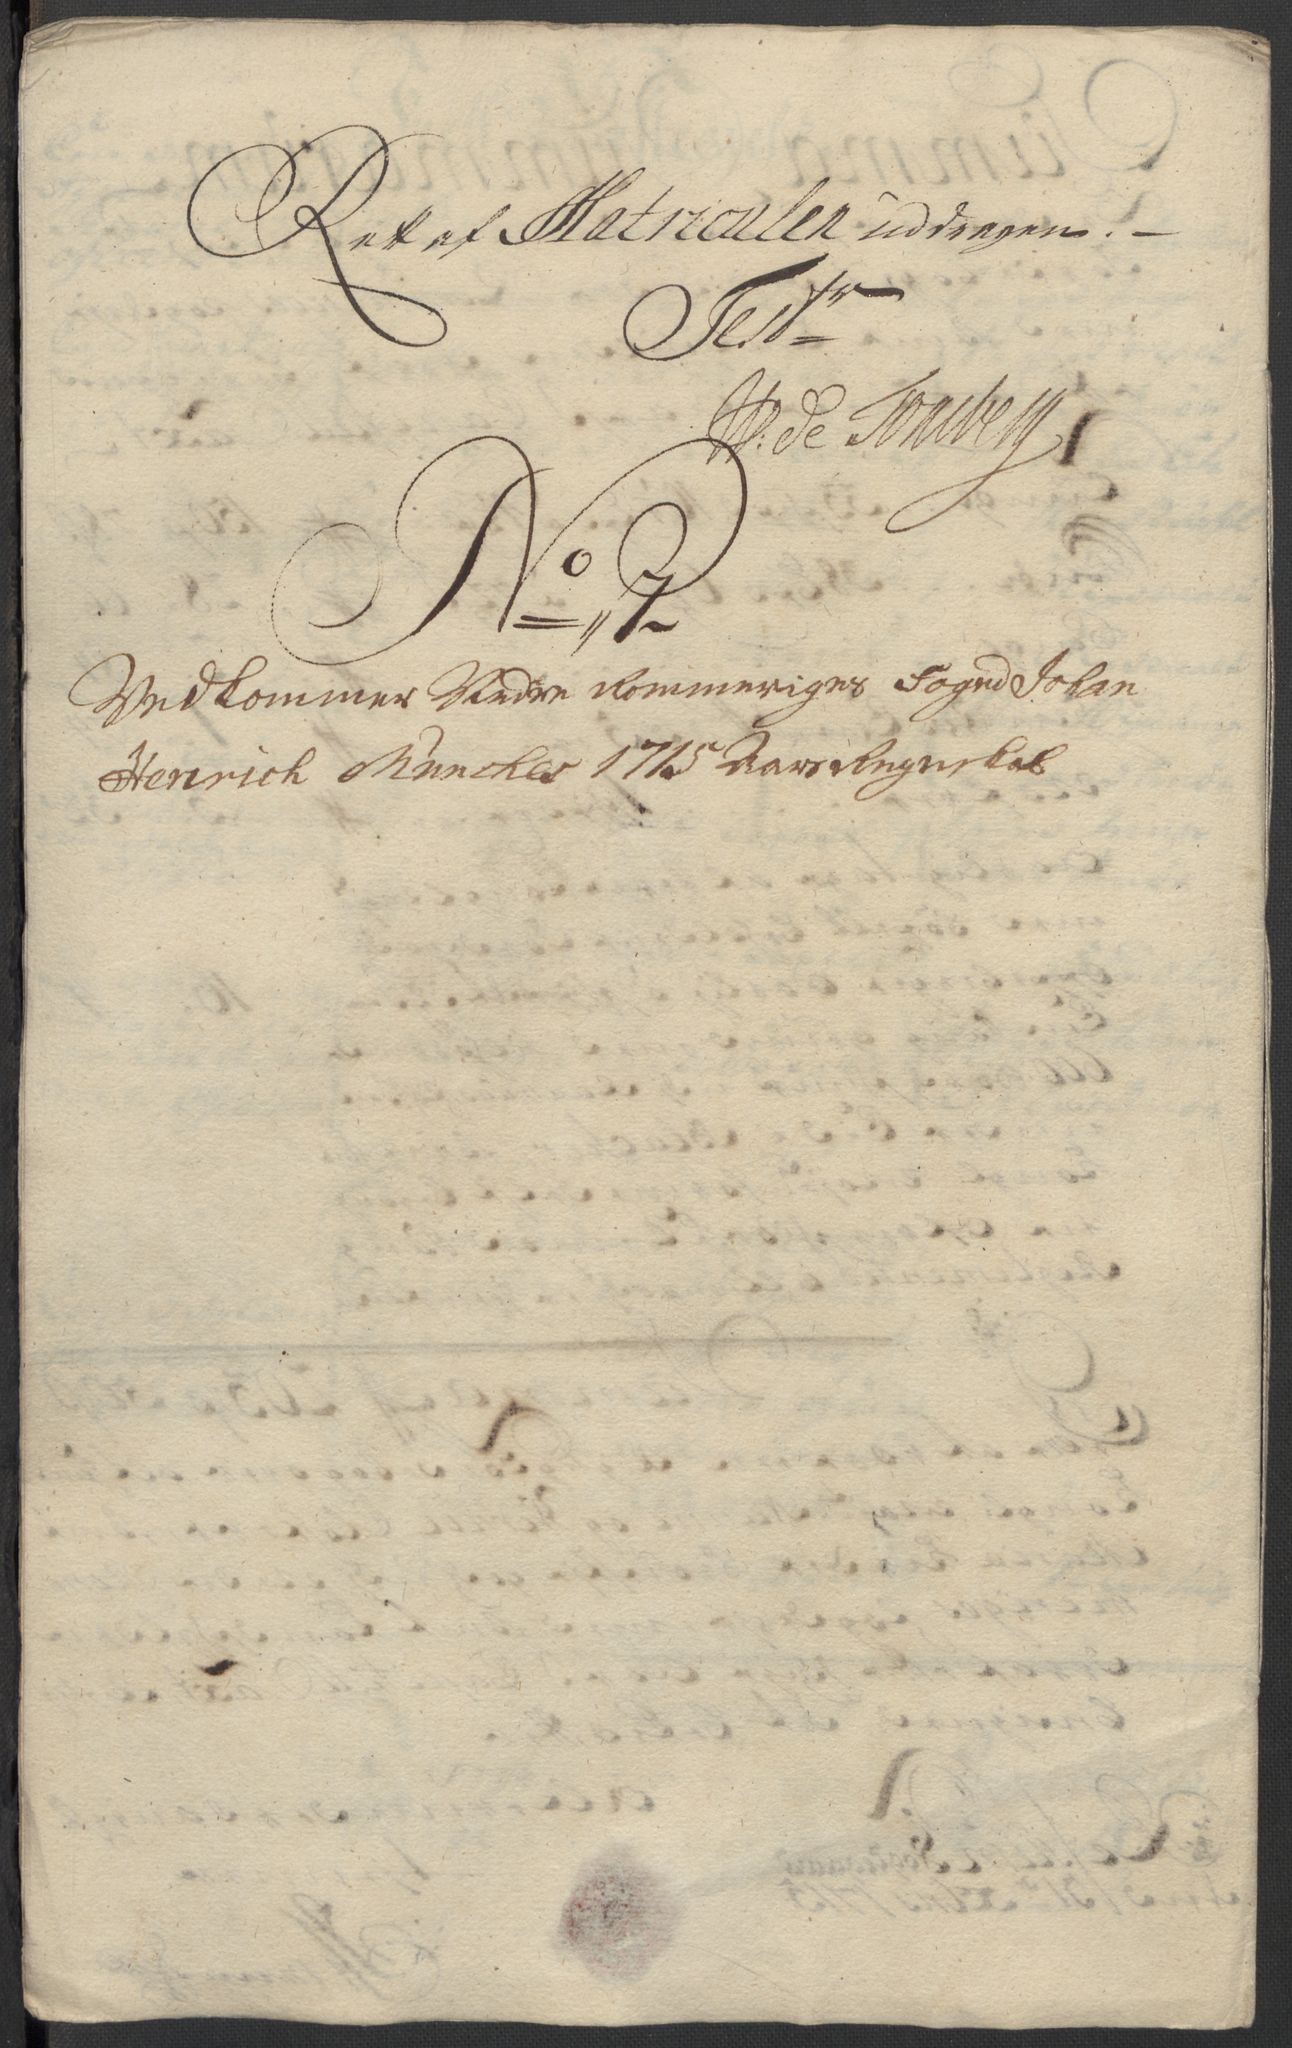 Rett af Matriculen uddragen. –
Test:r
W: de Tonsberg
No 7
Vedkommer Nedre Rommeriges Foged Johan
Henrich Münches 1715 Aars Regnskab